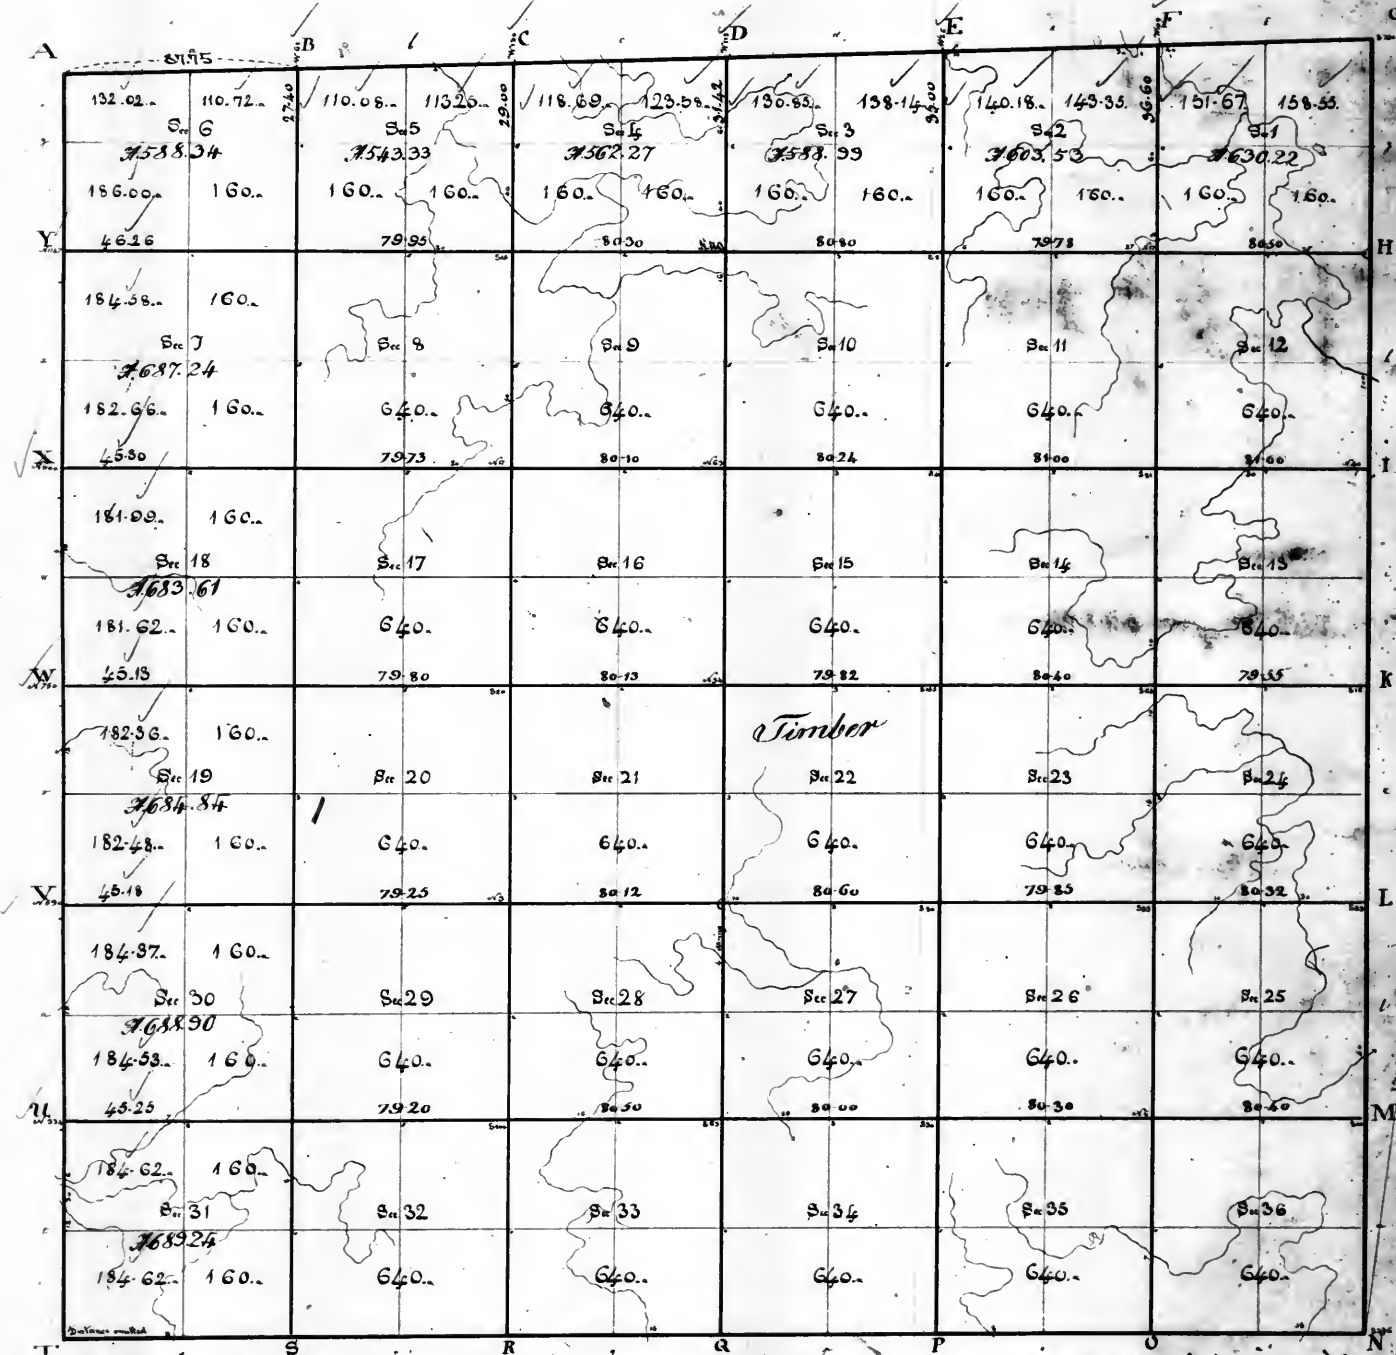 A B C D E F
87.75
132.02 110.72 27.40 110.08 113.25 29.00 118.69 123.58 31.42 130.85 138.14 32.00 140.18 143.35 36.60 151.67 158.55
Sec 6 Sec 5 Sec 4 Sec 3 Sec 2 Sec 1
A.588.34 A.543.33 A.562.27 A.588.99 A.603.53 A.630.22
186.00 160 160 160 160 160 160 160 160 160 160 160
Y 46.26 79.95 80.30 80.80 79.78 80.50 H
184.58 160
Sec 7 Sec 8 Sec 9 Sec 10 Sec 11 Sec 12
A.687.24
182.66 160 640 640 640 640 640
X 45.30 79.73 80.10 80.24 81.00 81.00 I
181.99 160
Sec 18 Sec 17 Sec 16 Sec 15 Sec 14 Sec 13
A.683.61
181.62 160 640 640 640 640 640
W 45.13 79.80 80.13 79.82 80.40 79.55 K
Timber
182.36 160
Sec 19 Sec 20 Sec 21 Sec 22 Sec 23 Sec 24
A.684.84
182.48 160 640 640 640 640 640
X 45.18 79.25 80.12 80.60 79.85 80.32 L
184.37 160
Sec 30 Sec 29 Sec 28 Sec 27 Sec 26 Sec 25
A.688.90
184.53 160 640 640 640 640 640
U 45.25 79.20 80.50 80.00 80.30 80.40 M
184.62 160
Sec 31 Sec 32 Sec 33 Sec 34 Sec 35 Sec 36
A.689.24
184.62 160 640 640 640 640 640
Distances omitted
T S R Q P O N